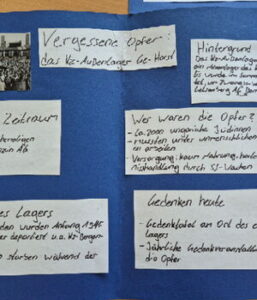 Vergessene Opfer:
das Kz-Außenlager Ge-Horst
Hintergrund
Das Kz-Außenlager
ein Außenlager des
Es wurde im Sommer
um Zwangs
Gelsenberg AG
Zeitraum
Wer waren die Opfer?
- Ca. 2000 ungarische Jüdinnen
- mussten unter unmenschlichen
arbeiten
- Versorgung: kaum Nahrung,
misshandlung durch SS-Wachen
es Lagers
wurden Anfang 1945
deportiert u.a. Kz Bergen-
starben während der
Gedenken heute
- Gedenktafel am Ort des e
Lagers
- Jährliche Gedenkveranstalt
die Opfer